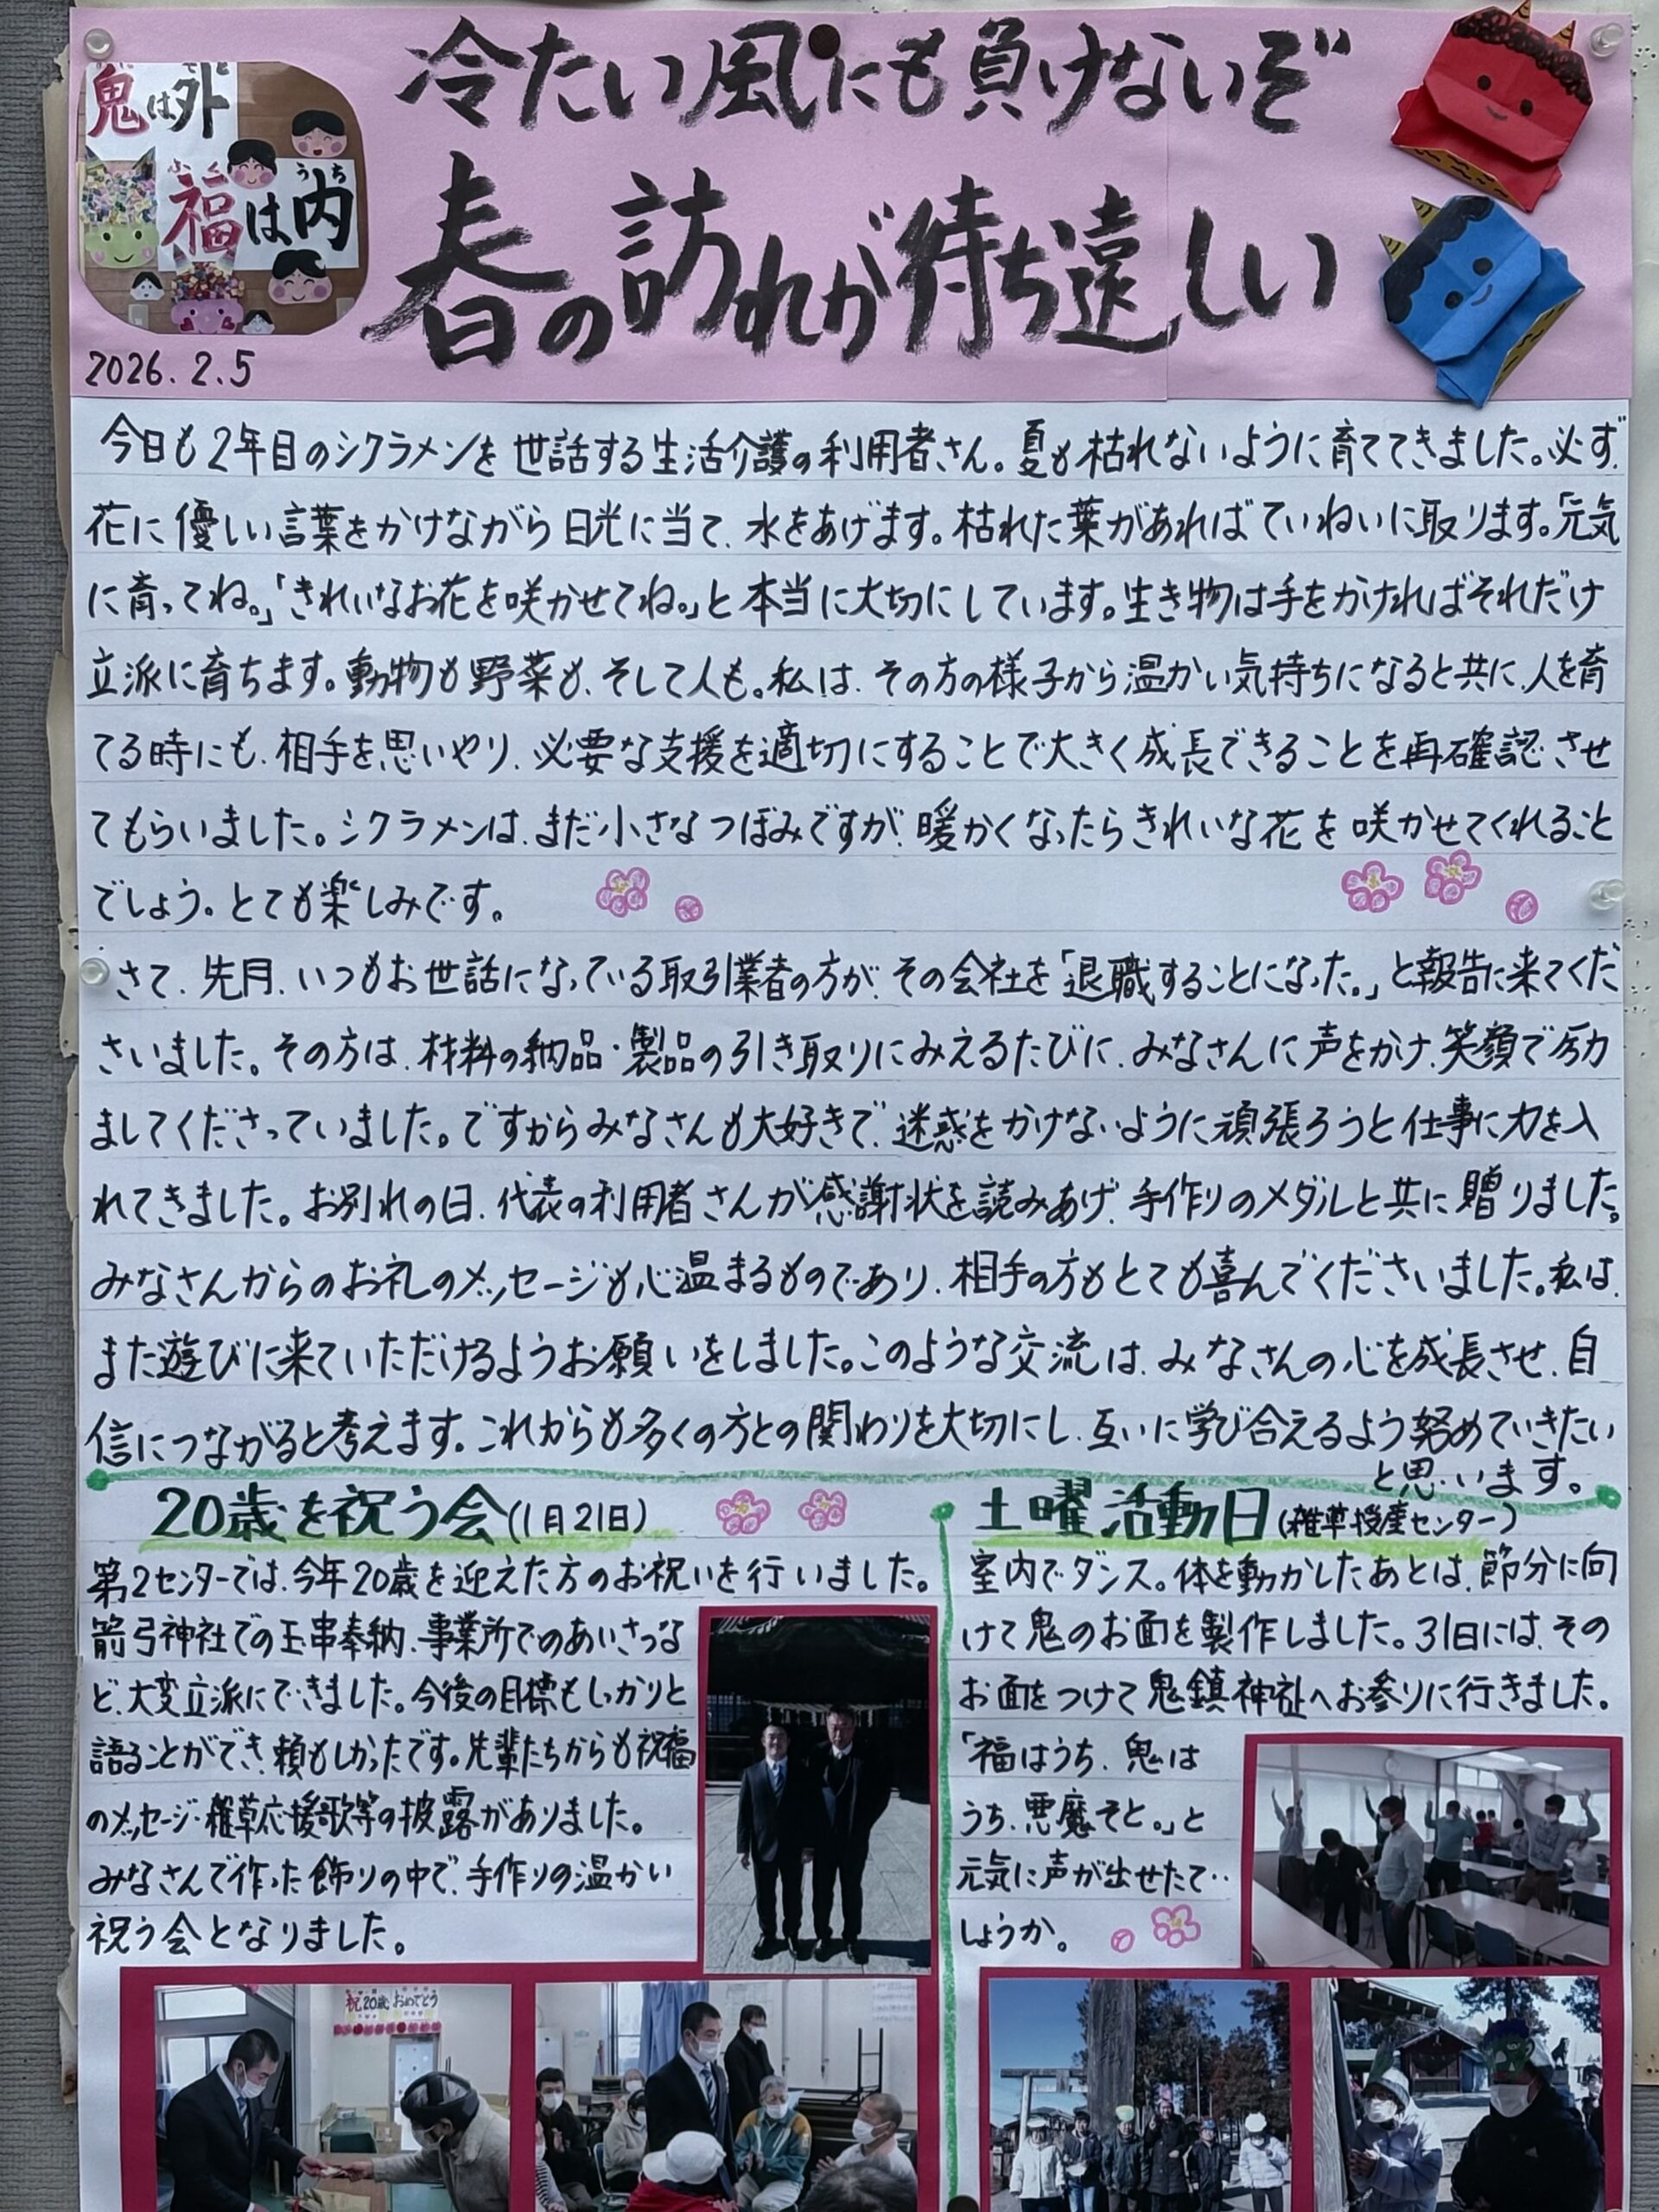 鬼は外
福は内
ふく
うち
冷たい風にも負けないぞ
春の訪れが待ち遠しい
2026.2.5
今日も2年目のシクラメンを世話する生活介護の利用者さん。夏も枯れないように育ててきました。必ず、
花に優しい言葉をかけながら日光に当て、水をあげます。枯れた葉があればていねいに取ります。「元気
に育ってね。」「きれいなお花を咲かせてね。」と本当に大切にしています。生き物は手をかければそれだけ
立派に育ちます。動物も野菜も、そして人も。私は、その方の様子から温かい気持ちになると共に、人を育
てる時にも、相手を思いやり、必要な支援を適切にすることで大きく成長できることを再確認させ
てもらいました。シクラメンは、まだ小さなつぼみですが、暖かくなったらきれいな花を咲かせてくれること
でしょう。とても楽しみです。
さて、先月、いつもお世話になっている取引業者の方が、その会社を「退職することになった。」と報告に来てくだ
さいました。その方は、材料の納品・製品の引き取りにみえるたびに、みなさんに声をかけ、笑顔で励
ましてくださっていました。ですからみなさんも大好きで、迷惑をかけないように頑張ろうと仕事に力を入
れてきました。お別れの日、代表の利用者さんが感謝状を読みあげ、手作りのメダルと共に贈りました。
みなさんからのお礼のメッセージも心温まるものであり、相手の方もとても喜んでくださいました。私は、
また遊びに来ていただけるようお願いをしました。このような交流は、みなさんの心を成長させ、自
信につながると考えます。これからも多くの方との関わりを大切にし、互いに学び合えるよう努めていきたい
と思います。
20歳を祝う会(1月21日)
第2センターでは、今年20歳を迎えた方のお祝いを行いました。
箭弓神社での玉串奉納、事業所でのあいさつな
ど、大変立派にできました。今後の目標もしっかりと
語ることができ、頼もしかったです。先輩たちからも祝福
のメッセージ・雑草応援歌等の披露がありました。
みなさんで作った飾りの中で、手作りの温かい
祝う会となりました。
祝20歳おめでとう
土曜活動日(雑草授産センター)
室内でダンス。体を動かしたあとは、節分に向
けて鬼のお面を製作しました。31日には、その
お面をつけて鬼鎮神社へお参りに行きました。
「福はうち、鬼は
うち、悪魔そと。」と
元気に声が出せたで‥
しょうか。